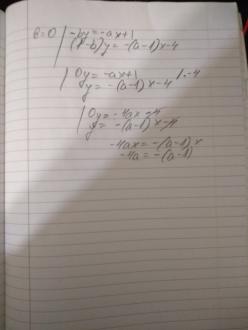 b=0 | -by = -ax+1
(1-b)y = -(a-1)x-4
| 0y = -ax+1 /·-4
y = -(a-1)x-4
| 0y = -4ax-4
y = -(a-1)x-4
-4ax = -(a-1)x
-4a = -(a-1)